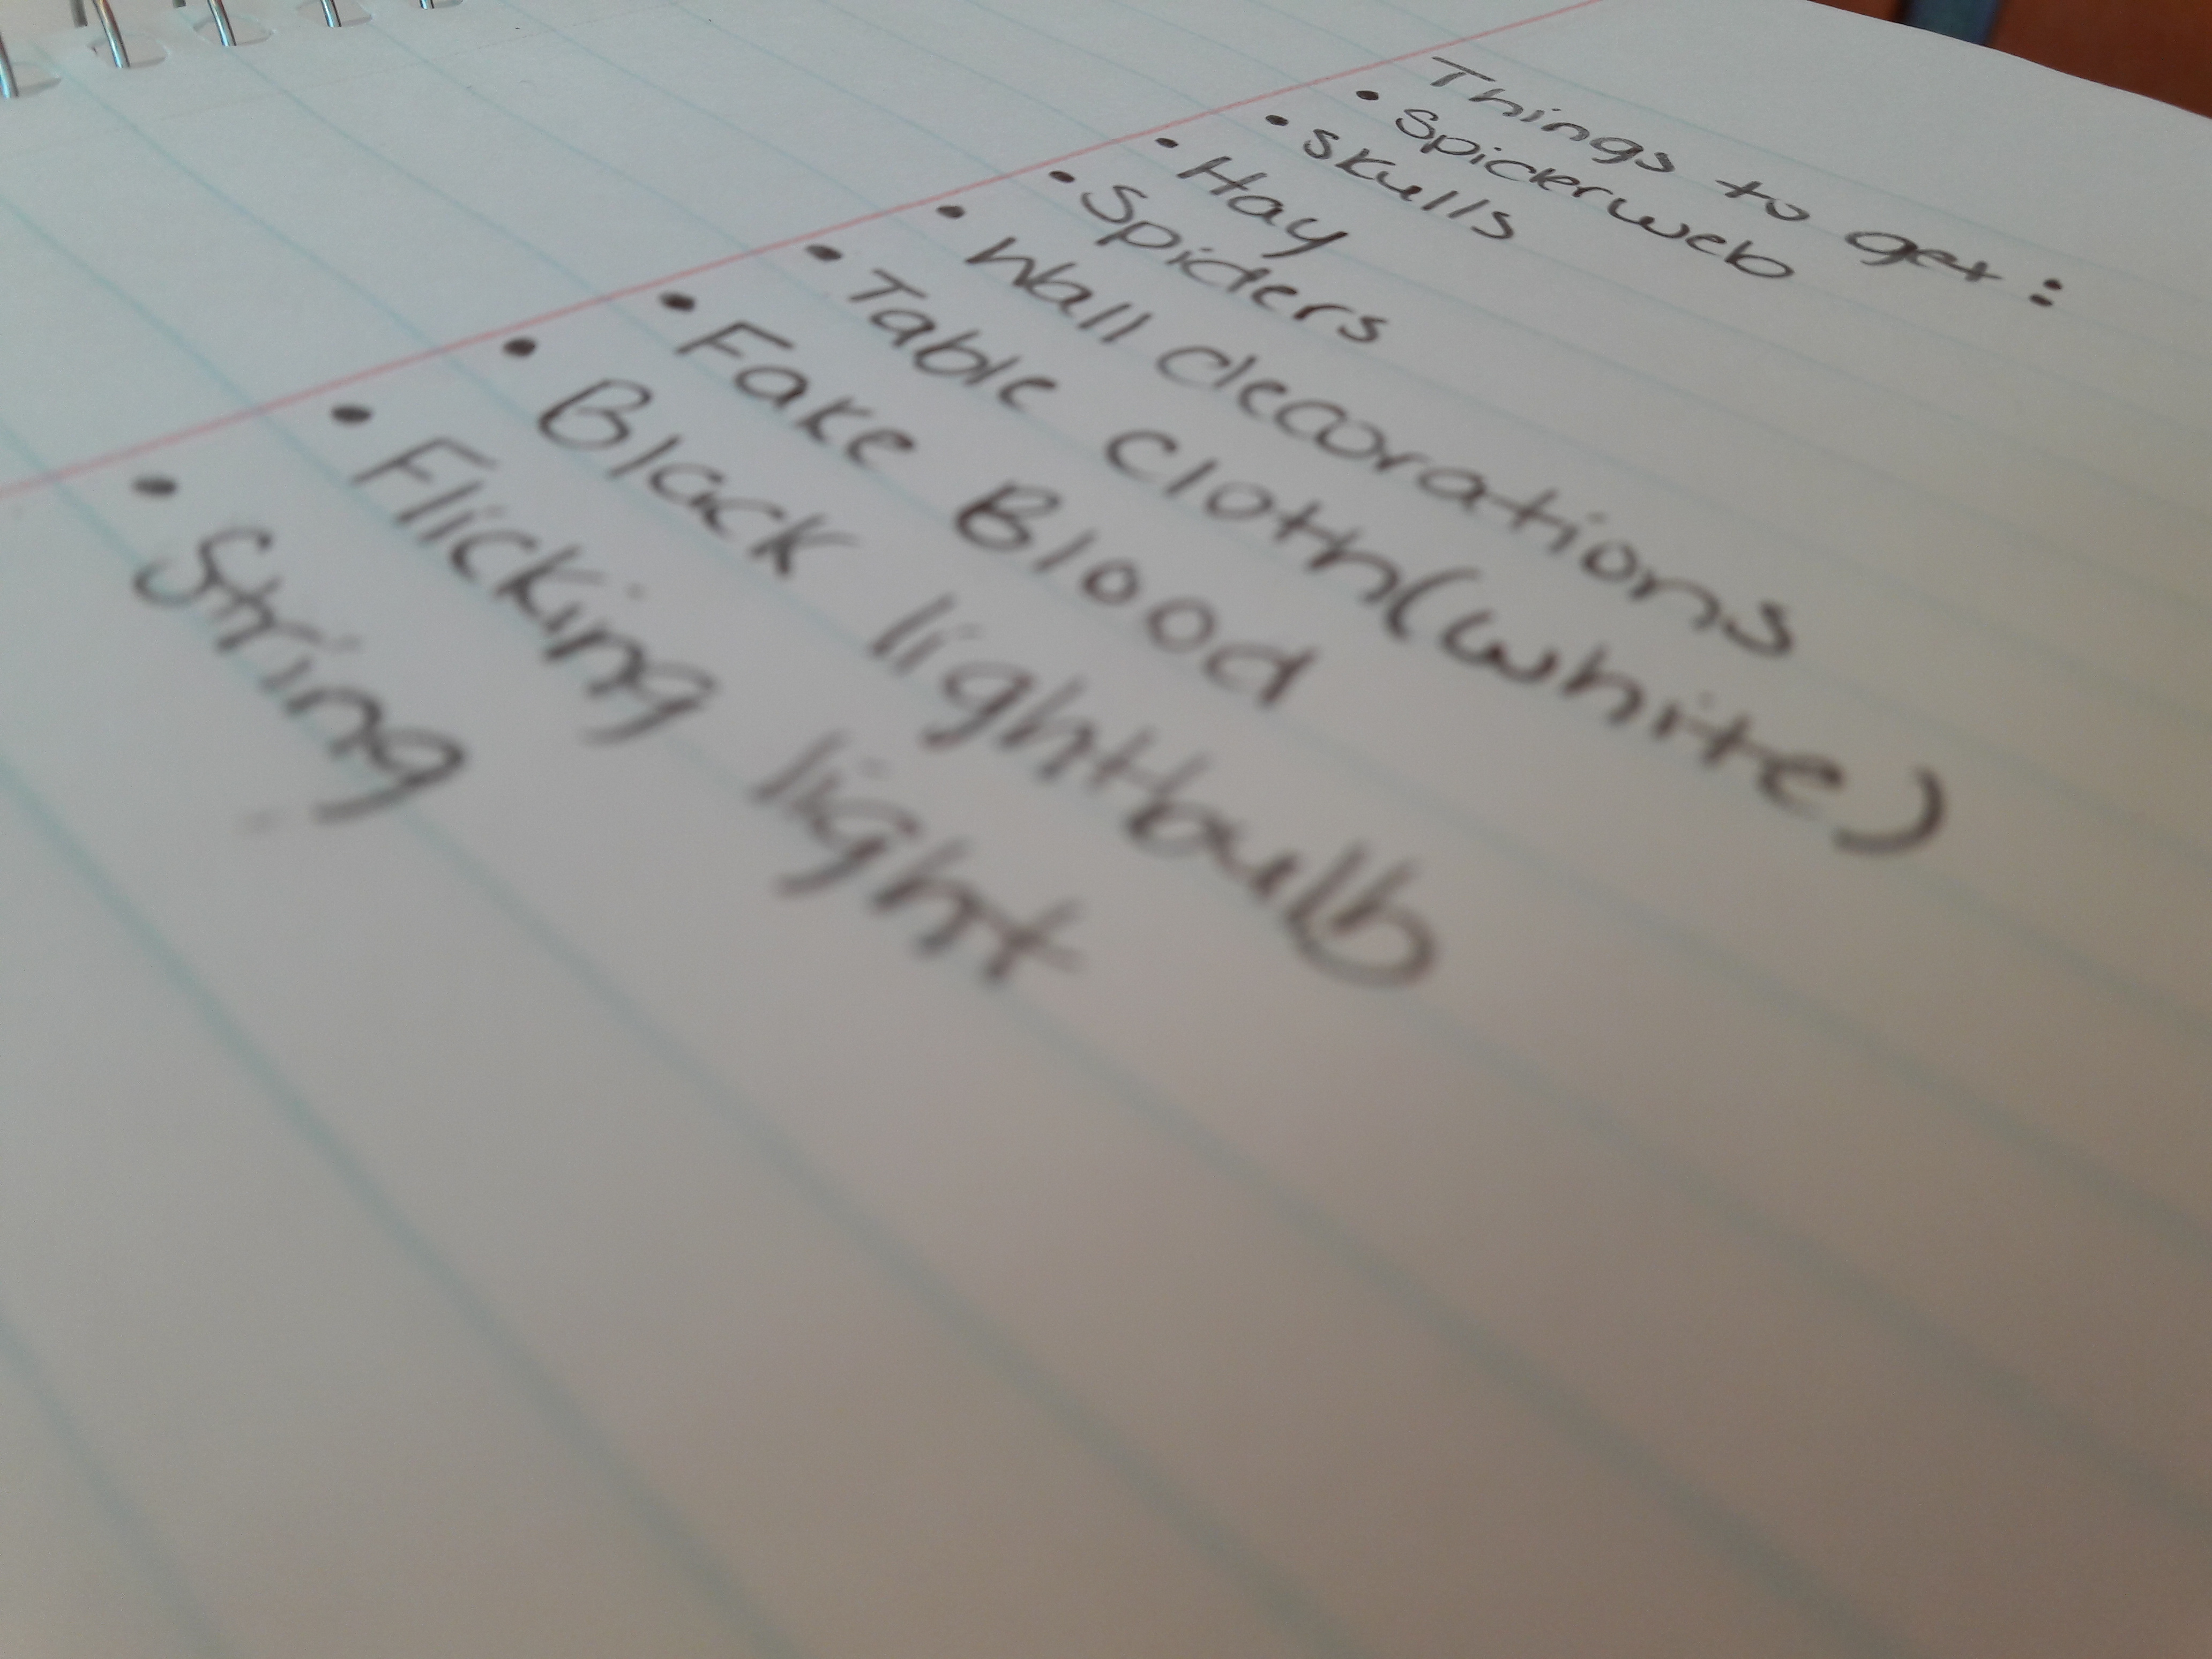 Things to get:
• Spiderweb
• skulls
• Hay
• Spiders
• Wall decorations
• Table cloth(white)
• Fake Blood
• Black lightbulb
• Flicking light
• String